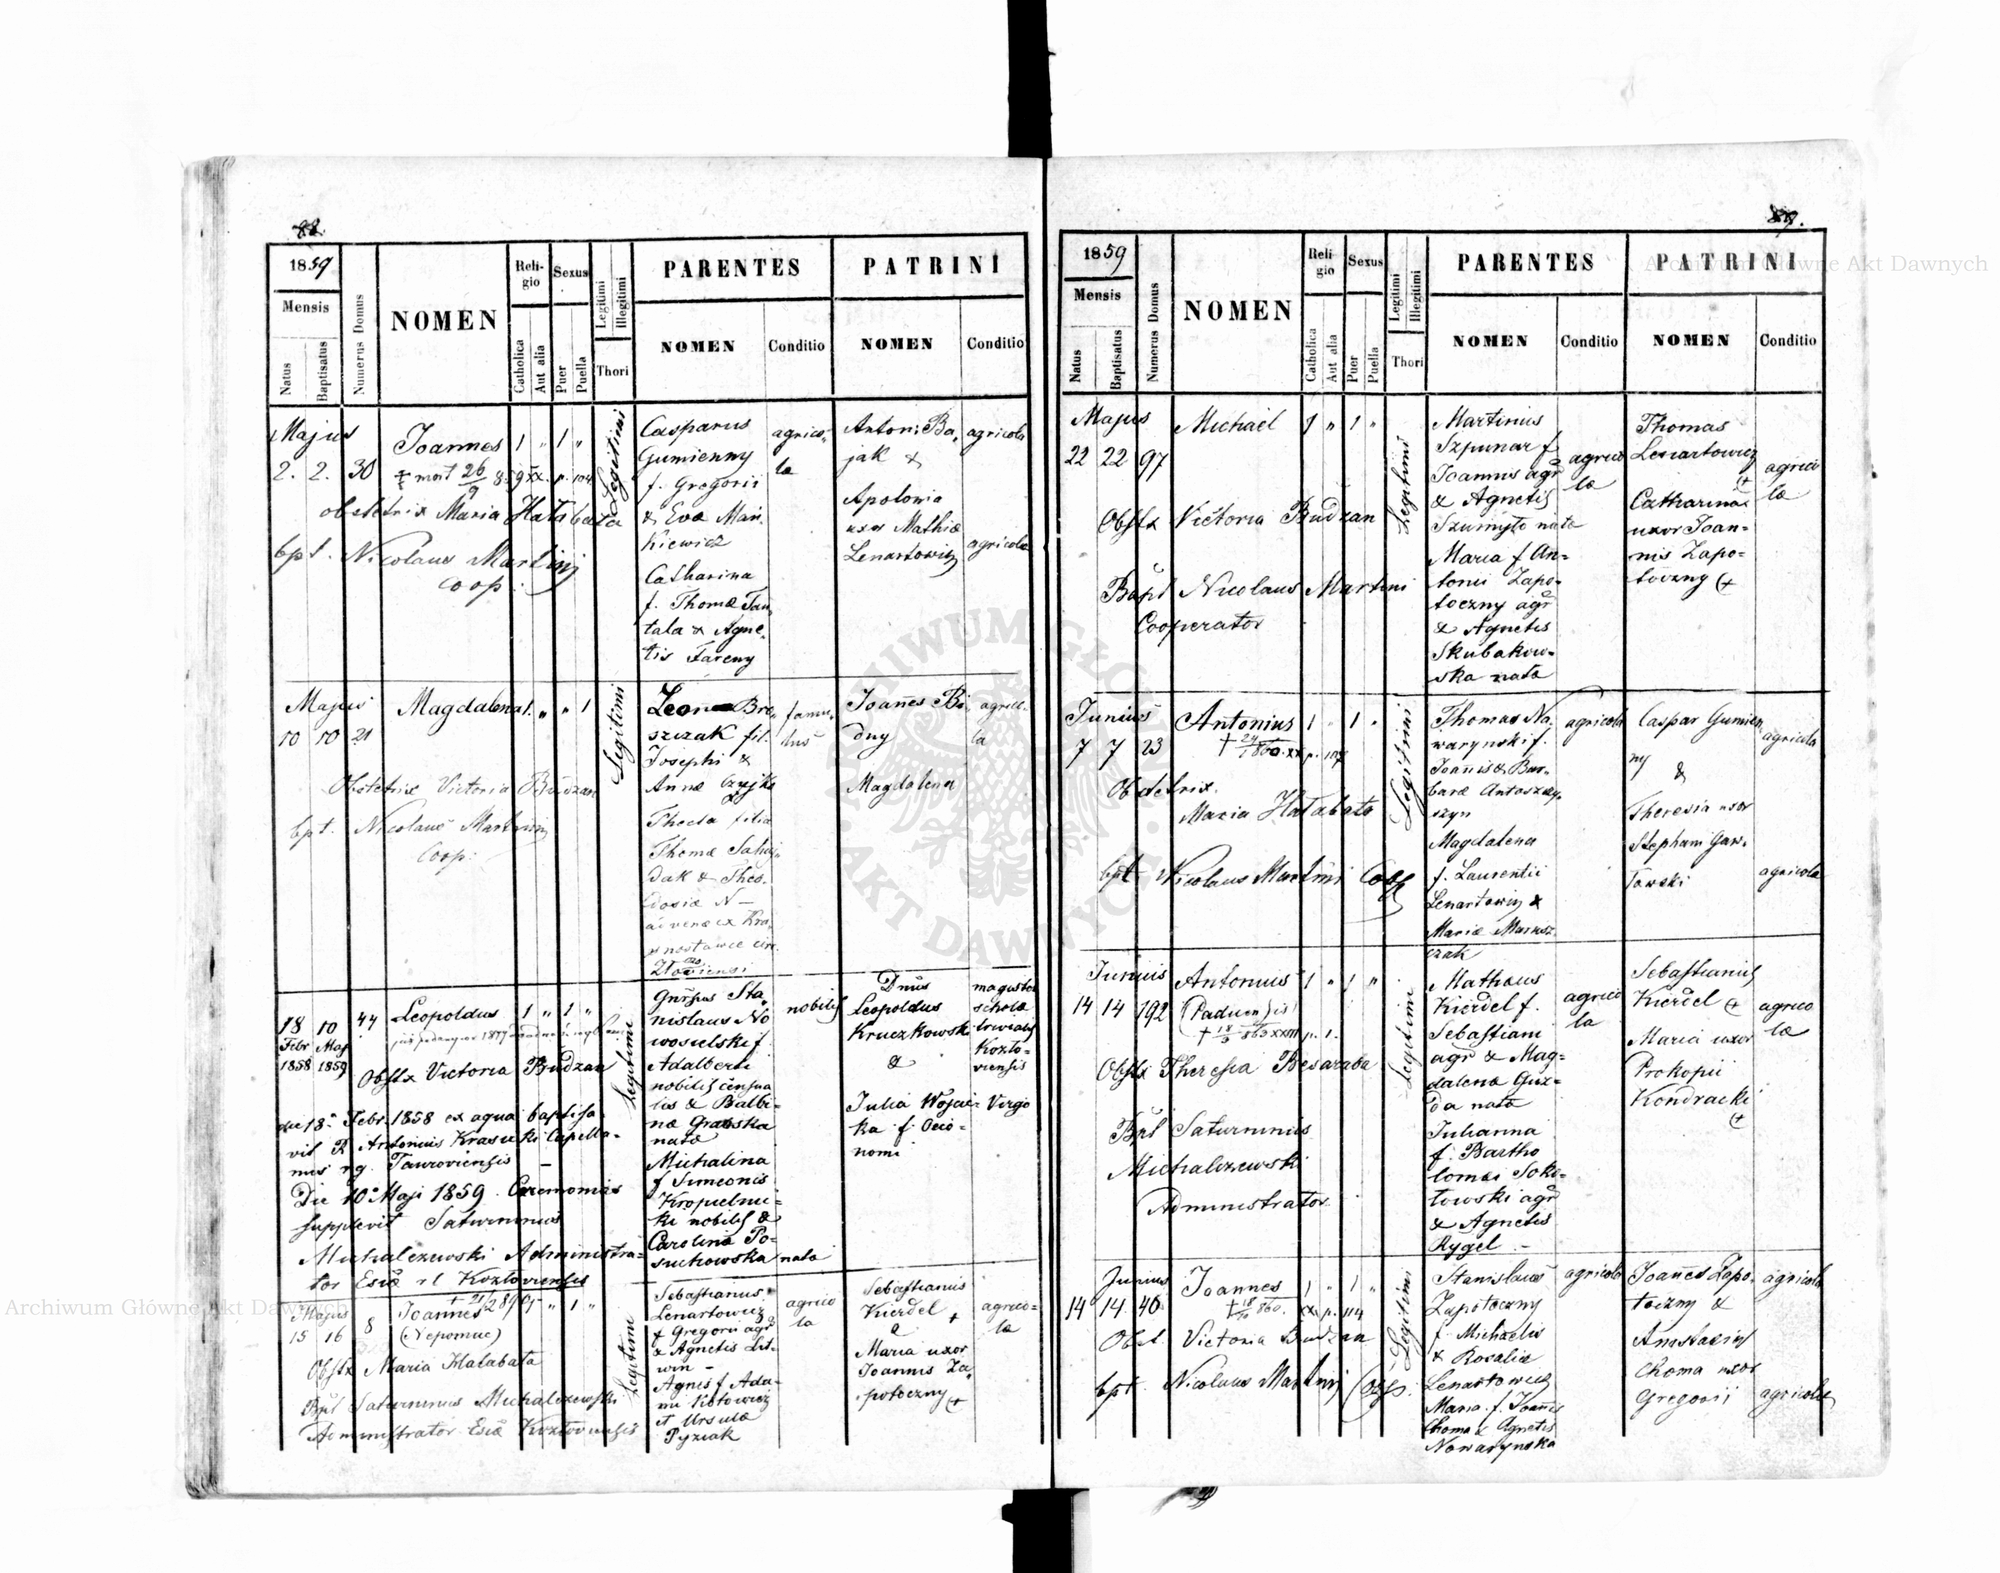 88.
1859
Mensis
Natus
Baptisatus
Numerus Domus
NOMEN
Religio
Catholica
Aut alia
Sexus
Puer
Puella
Legitimi
Illegitimi
Thori
PARENTES
NOMEN
Conditio
PATRINI
NOMEN
Conditio
Majus
2. 2. 30
Joannes 1 " 1 "
obstetrix Maria Hałabata
bpt. Nicolaus Martini
coop:
Legitimi
Casparus
Gumienny
f. Gregorii
& Evae Man-
kiewicz
Catharina
f. Thomae Tan
tala & Agne-
tis Fareny
agrico-
la
Antoni Ba-
jak &
Apolonia
uxor Mathiae
Lenartowicz
agricola
agricola
Majus
10 10 21
Magdalena 1. " " 1
Obstetrix Victoria Budzan
bpt. Nicolaus Martini
Coop:
Legitimi
Leon Bre-
szczak fil.
Josephi &
Annae
Thecla filia
Thomae
dak & Theo-
dosiae N—
advenae ex Kra-
snostawce circ.
famu-
lus
Joannes Bi-
dny
Magdalena
agrico-
la
18 10 44
Febr Maj
1858 1859
Leopoldus 1 " 1 "
Obstx Victoria Budzan
die 18a Febr. 1858 ex aqua baptisa-
vit R Antonius Krasucki Capella-
nus rg. Tauroviensis —
Die 10a Maji 1859. Ceremonias
supplevit Saturninus
Michalczewski Administra-
tor Esiae rl Kozłoviensis
Legitimi
Gnrsus Sta-
nislaus No
wosielski f.
Adalberti
nobilis
& Balbi-
nae Grabska
nata
Michalina
f Simeonis
Kropielnic-
ki nobilis &
Carolina Po-
suchowska nata
nobilis
Dnus
Leopoldus
Kruczkowski
&
Julia Wojcic-
ka f. Oeco-
nomi
magister
scholae
trivialis
Kozło-
viensis
Virgo
Majus
15 16 8
Joannes 1 " 1 "
(Nepomuc)
Obstx Maria Hałabata
Bpt Saturninus Michalczewski
Administrator Esiae Kozłoviensis
Legitimi
Sebastianus
Lenartowicz
f Gregorii agr
& Agnetis Lit-
win —
Agnes f Ada-
mi
et Ursulae
Pyziak
agrico
la
Sebastianus
Kierdel +
&
Maria uxor
Joannis Za-
potoczny (+
agrico-
lae
89.
1859
Mensis
Natus
Baptisatus
Numerus Domus
NOMEN
Religio
Catholica
Aut alia
Sexus
Puer
Puella
Legitimi
Illegitimi
Thori
PARENTES
NOMEN
Conditio
PATRINI
NOMEN
Conditio
Majus
22 22 97
Michael 1 " 1 "
Obstx Victoria Budzan
Bapt Nicolaus Martini
Cooperator
Legitimi
Martinus
Szpunar f.
Joannis agr
& Agnetis
Szumyło nata
Maria f An-
tonii Zapo-
toczny agr
& Agnetis
Skubakow-
ska nata
agrico
lae
Thomas
Lenartowicz
(+
Catharina
uxor Joan-
nis Zapo-
toczny (+
agrico
lae
Junius
7 7 23
Antonius 1 " 1 "
Obstetrix.
Maria Hałabata
bpt Nicolaus Martini Coop
Legitimi
Thomas Na-
warynski f.
Joannis & Bar-
barae Antoszcy-
szyn
Magdalena
f. Laurentii
Lenartowicz &
Mariae Marusz-
czak
agricola
Caspar Gumien-
ny
&
Theresia uxor
Stephani Gaw-
łowski
agricola
agricola
Junius
14 14 192
Antonius 1 " 1 "
(Paduensis)
Obstx Theresia Besaraba
Bpt Saturninus
Michalczewski
Administrator
Legitimi
Mathaeus
Kierdel f.
Sebastiani
agr & Mag-
dalena Guz-
da nata
Julianna
f. Bartho
lomaei Soko-
łowski agr
& Agnetis
Rygel —
agrico
la
Sebastianus
Kierdel (+
Maria uxor
Prokopii
Kondracki
(+
agrico
lae
Junius
14 14. 40
Joannes 1 " 1 "
Obst. Victoria Budzan
bpt. Nicolaus Martini Coop.
Legitimi
Stanislaus
Zapotoczny
f. Michaelis
& Rosaliae
Lenartowicz
Maria f. Joannis
Choma & Agnetis
Nowarynska
agricola
Joannes Zapo-
toczny &
Anastasia
Choma uxor
Gregorii
agricola
agricolae
ARCHIWUM GŁÓWNE AKT DAWNYCH
Archiwum Główne Akt Dawnych
Archiwum Główne Akt Dawnych